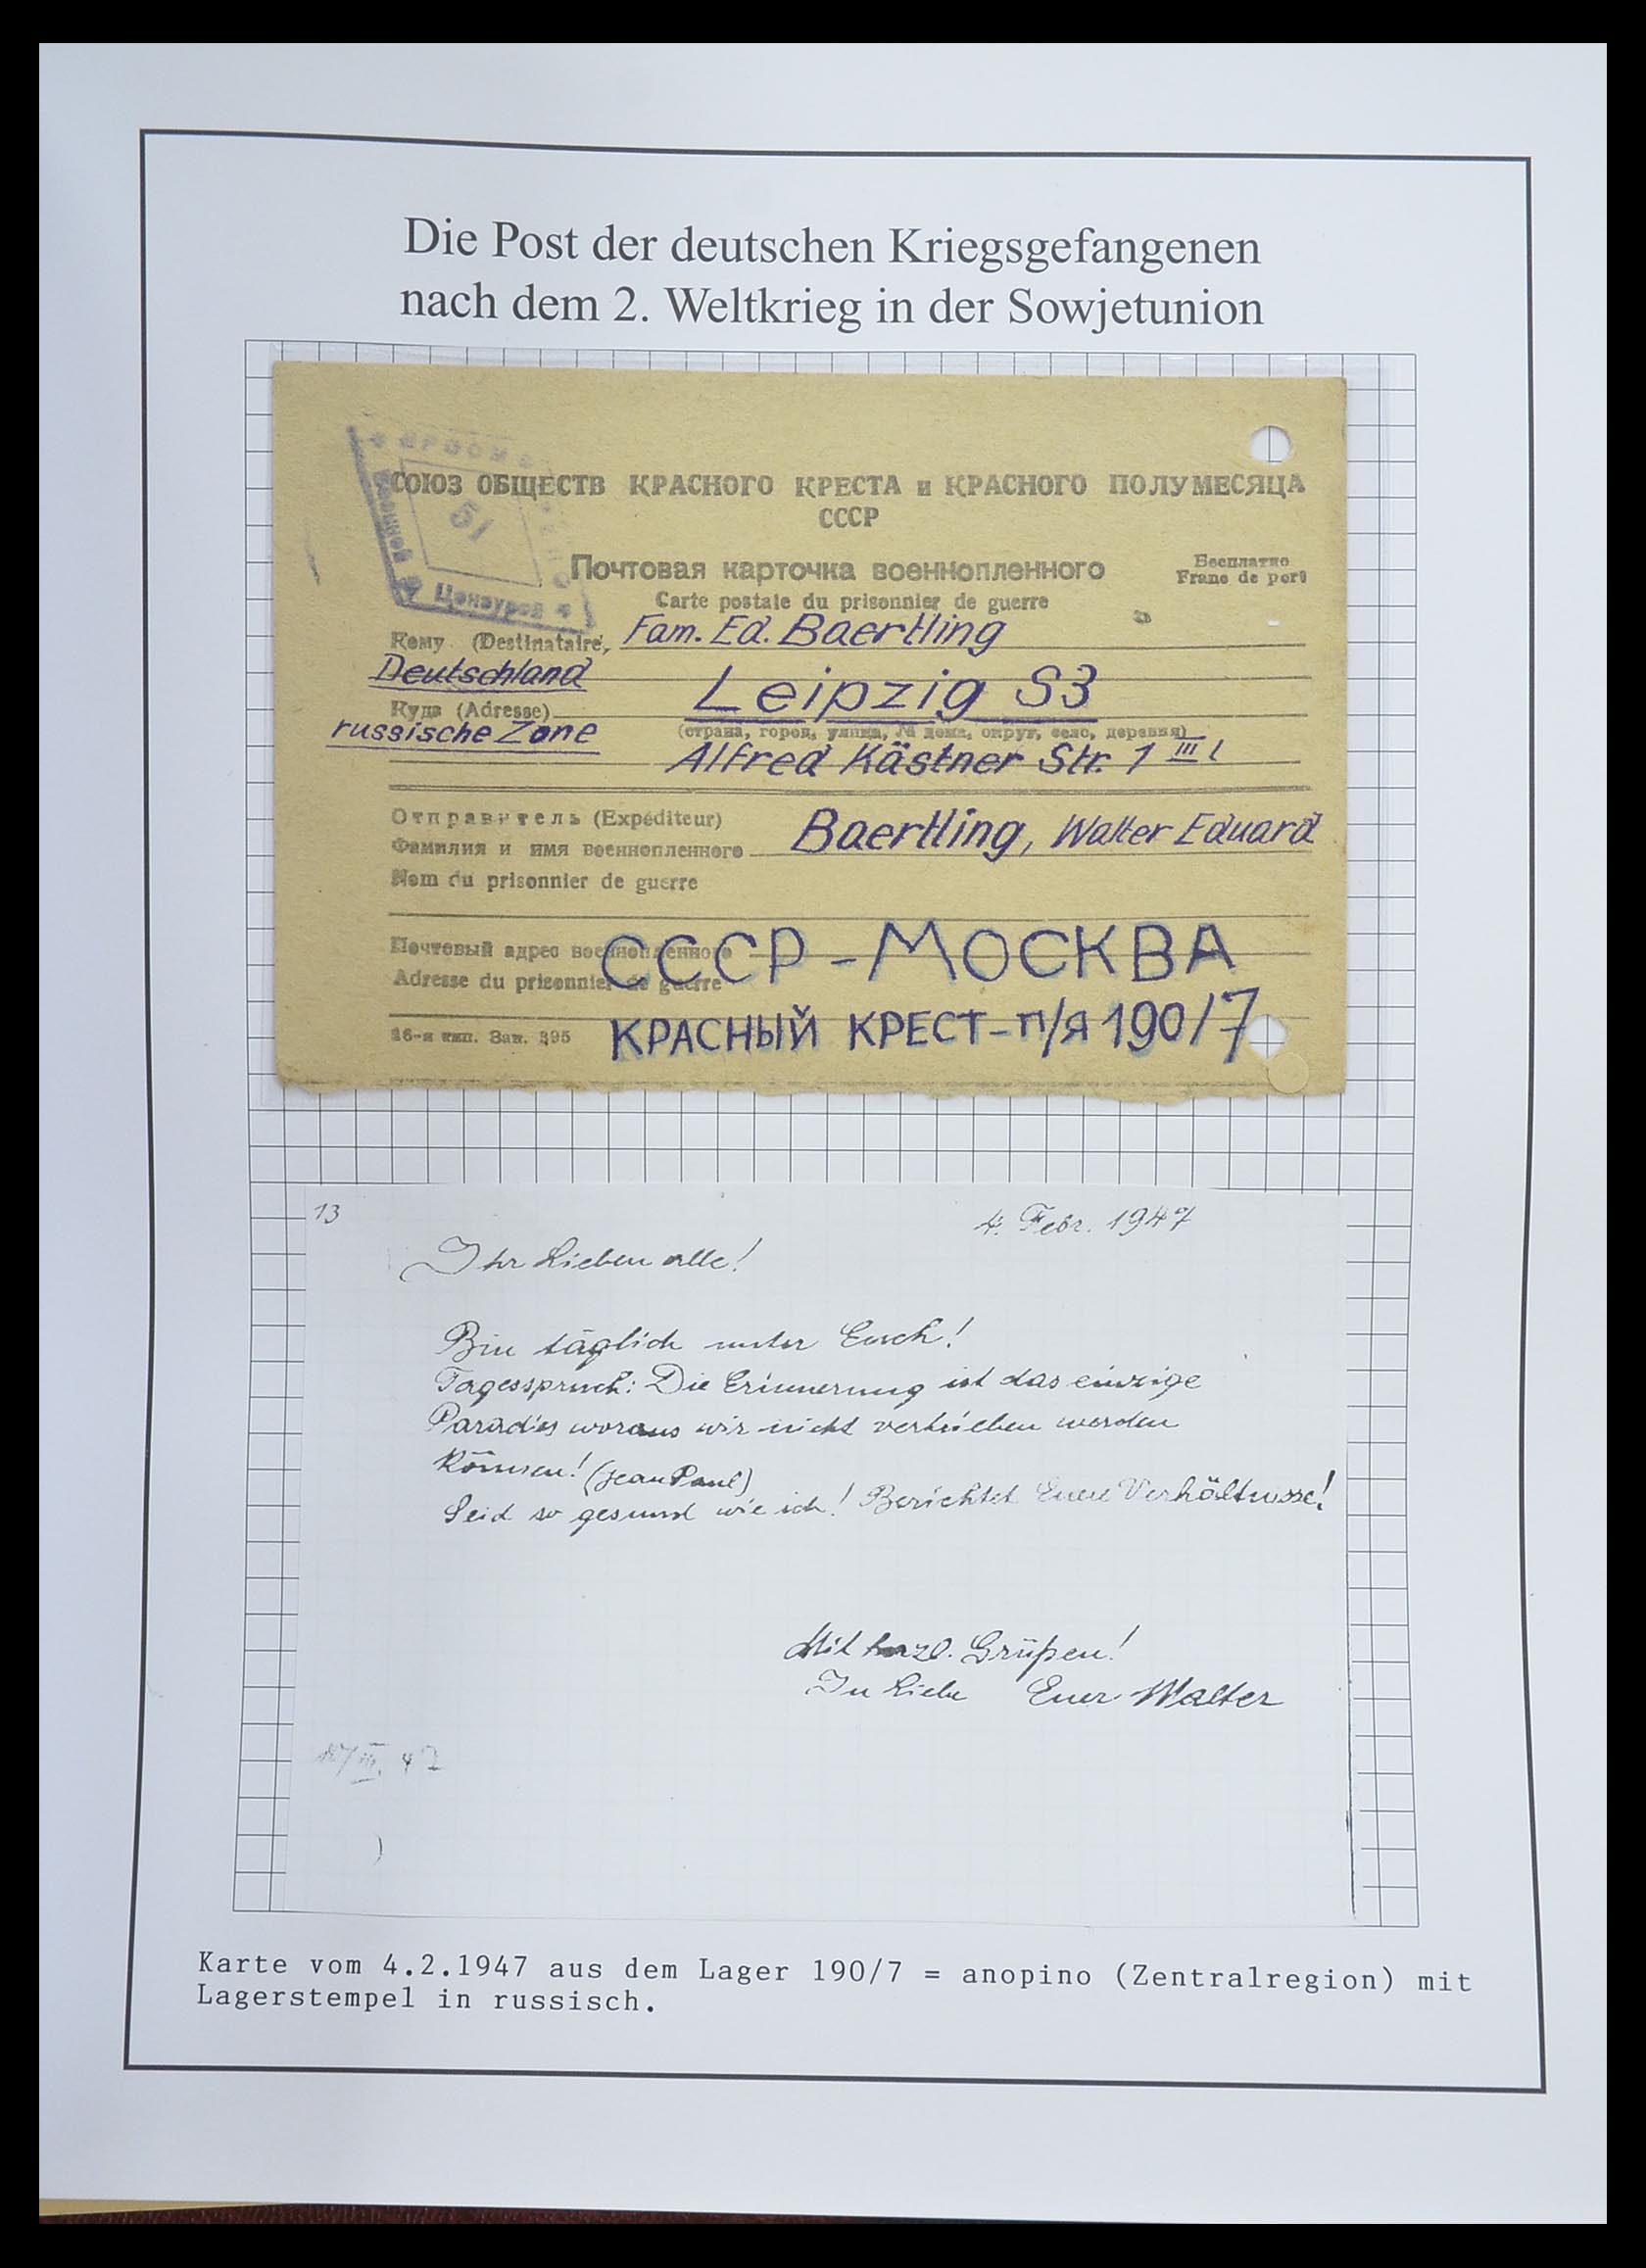 Die Post der deutschen Kriegsgefangenen
nach dem 2. Weltkrieg in der Sowjetunion
51
Военной
Цензурой
СОЮЗ ОБЩЕСТВ КРАСНОГО КРЕСТА и КРАСНОГО ПОЛУМЕСЯЦА
СССР
Почтовая карточка военнопленного
Бесплатно
Franc de port
Carte postale du prisonnier de guerre
Кому (Destinataire,
Fam. Ed. Baertling
Deutschland
Leipzig S3
Куда (Adresse)
russische Zone
(страна, город, улица, № дома, округ, село, деревня)
Alfred Kästner Str. 1 III l
Отправитель (Expéditeur)
Фамилия и имя военнопленного
Baertling, Walter Eduard
Nom du prisonnier de guerre
Почтовый адрес военнопленного
СССР-МОСКВА
Adresse du prisonnier de guerre
КРАСНЫЙ КРЕСТ-п/я 190/7
16-я тип. Зак. 395
13
4. Febr. 1947
Ihr Lieben alle!
Bin täglich unter Euch!
Tagesspruch: Die Erinnerung ist das einzige
Paradies woraus wir nicht vertrieben werden
können! (Jean Paul)
Seid so gesund wie ich! Berichtet Eure Verhältnisse!
Mit herzl. Grüßen!
In Liebe Euer Walter
III. 47
Karte vom 4.2.1947 aus dem Lager 190/7 = anopino (Zentralregion) mit
Lagerstempel in russisch.